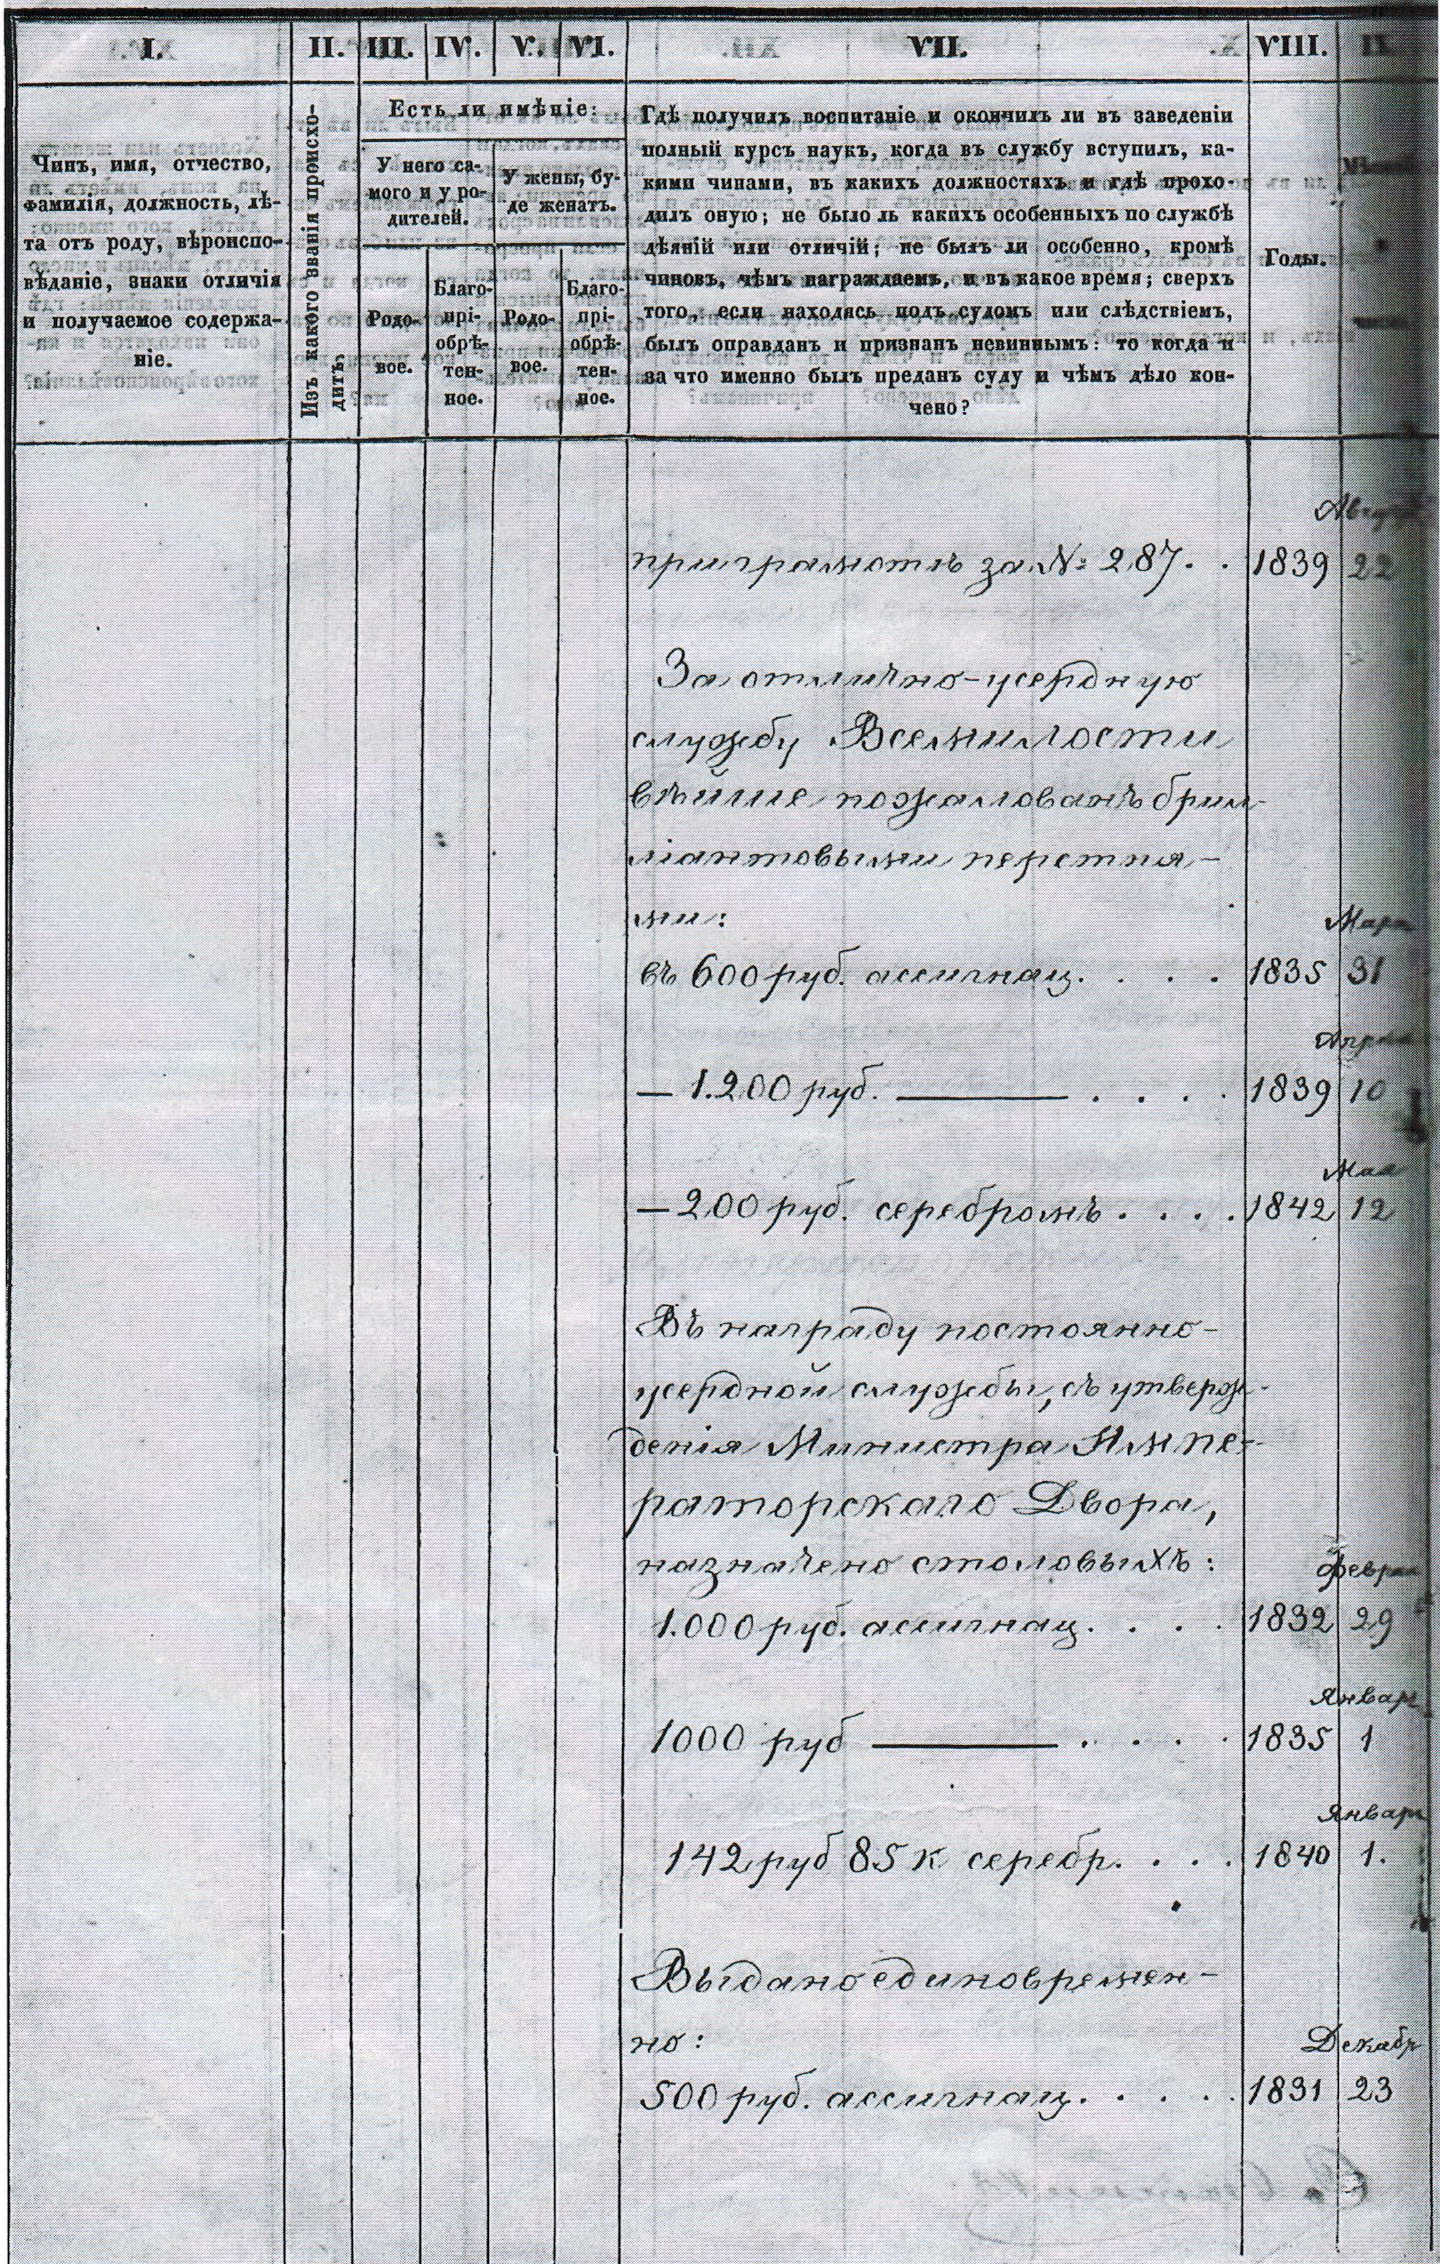 I. II. III. IV. V. VI. VII. VIII.
Чинъ, имя, отчество,
фамилія, должность, лѣ-
та отъ роду, вѣроиспо-
вѣданіе, знаки отличія
и получаемое содержа-
ніе.
Изъ какого званія происхо-
дитъ.
Есть ли имѣніе:
У него са-
мого и у ро-
дителей.
У жены, бу-
де женатъ.
Родо-
вое.
Благо-
прі-
обрѣ-
тен-
ное.
Родо-
вое.
Благо-
прі-
обрѣ-
тен-
ное.
Гдѣ получилъ воспитаніе и окончилъ ли въ заведеніи
полный курсъ наукъ, когда въ службу вступилъ, ка-
кими чинами, въ какихъ должностяхъ и гдѣ прохо-
дилъ оную; не было ль какихъ особенныхъ по службѣ
дѣяній или отличій; не былъ ли особенно, кромѣ
чиновъ, чѣмъ награждаемъ, и въ какое время; сверхъ
того, если находясь подъ судомъ или слѣдствіемъ,
былъ оправданъ и признанъ невиннымъ: то когда и
за что именно былъ преданъ суду и чѣмъ дѣло кон-
чено?
Годы.
Август
при грамотѣ за № 287. . 1839 22
За отлично-усердную
службу Всемилости
вѣйше пожалованъ брил-
ліантовыми перстня-
ми:
Март
въ 600 руб. ассигнац. . . . 1835 31
Апрел
— 1.200 руб. ——— . . . . 1839 10
Мая
— 200 руб. серебромъ . . . . 1842 12
Въ награду постоянно-
усердной службы, съ утверж-
денія Министра Импе-
раторскаго Двора,
назначено столовыхъ:
Феврал
1.000 руб. ассигнац. . . . 1832 29
Январ
1000 руб ——— . . . . 1835 1
Январ
142 руб 85 к серебр. . . . 1840 1.
Выдано единовремен-
но:
Декабр
500 руб. ассигнац. . . . . 1831 23